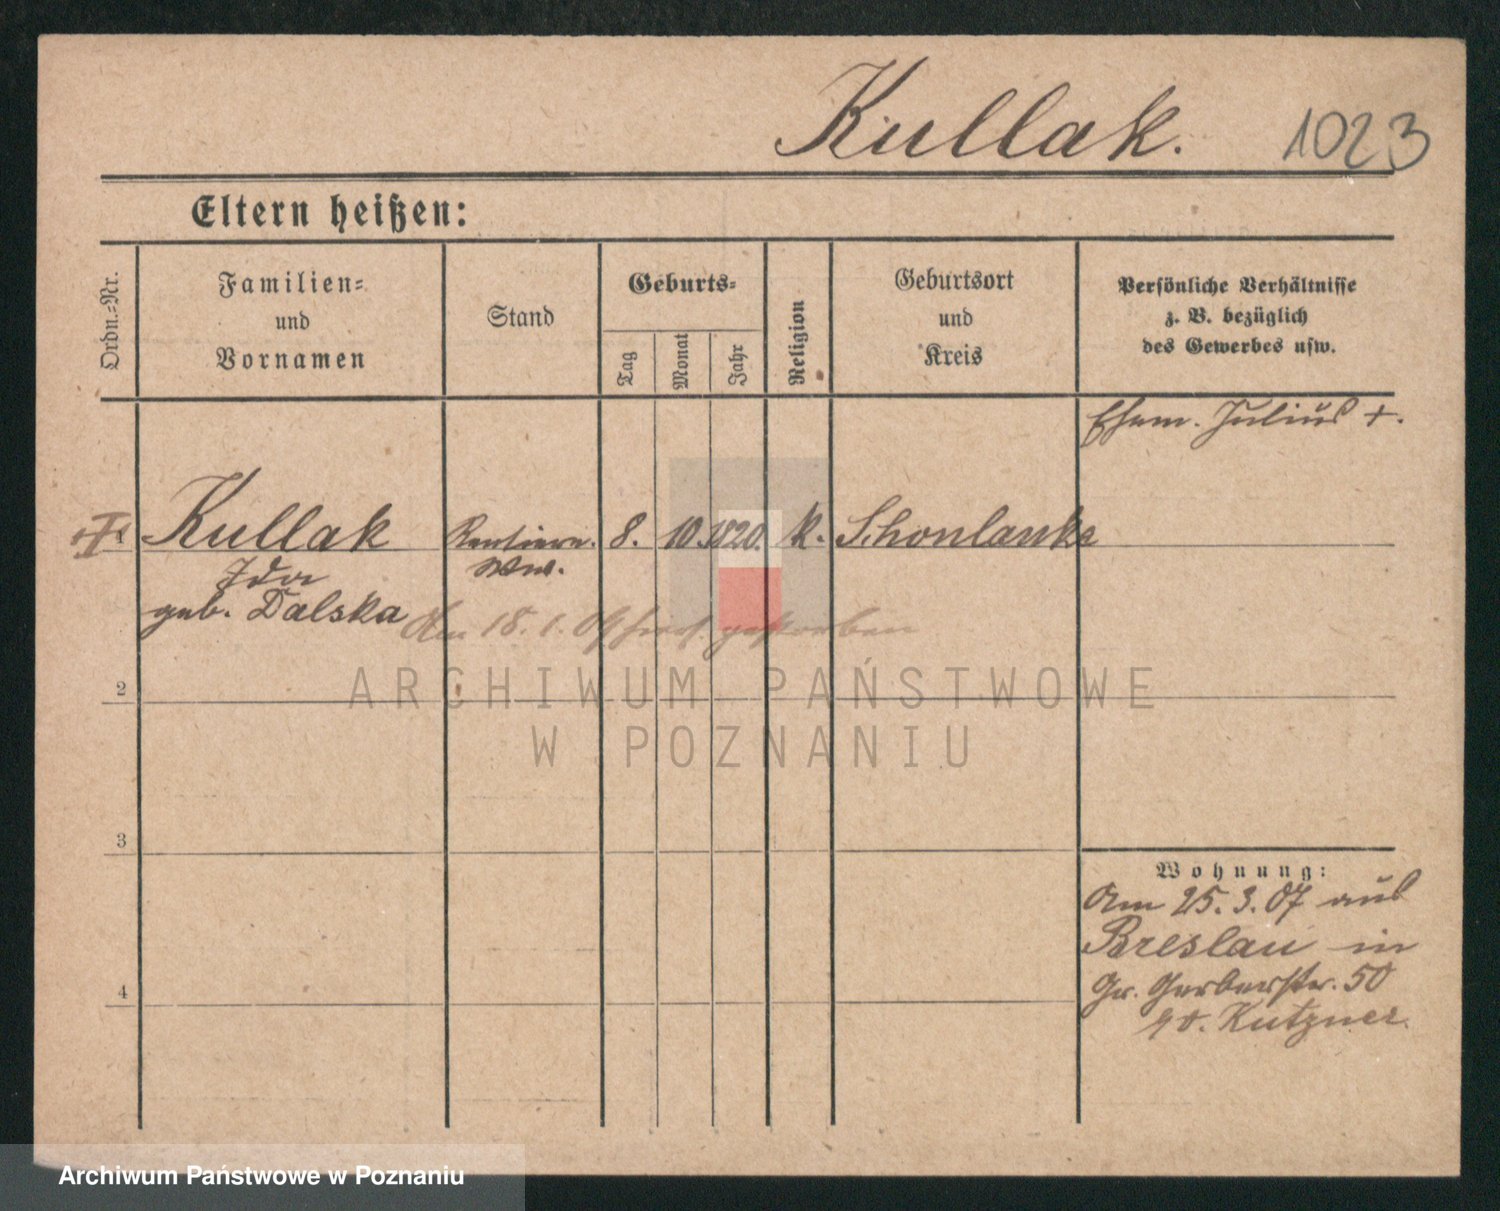 Kullak. 1023
Eltern heißen:
Ordn.-Nr.
Familien-
und
Vornamen
Stand
Geburts-
Tag
Monat
Jahr
Religion
Geburtsort
und
Kreis
Persönliche Verhältnisse
z. B. bezüglich
des Gewerbes usw.
Ehem. Julius +.
Kullak Rentiere. 8. 10. 1820. k. Schonlanke
Ida Ww.
geb. Dalska
Am 18. 1. 09 hier gestorben
ARCHIWUM PAŃSTWOWE
2
W POZNANIU
3
Wohnung:
Am 25. 3. 07 aus
Breslau in
Gr. Gerberstr. 50
4
Kutzner.
Archiwum Państwowe w Poznaniu